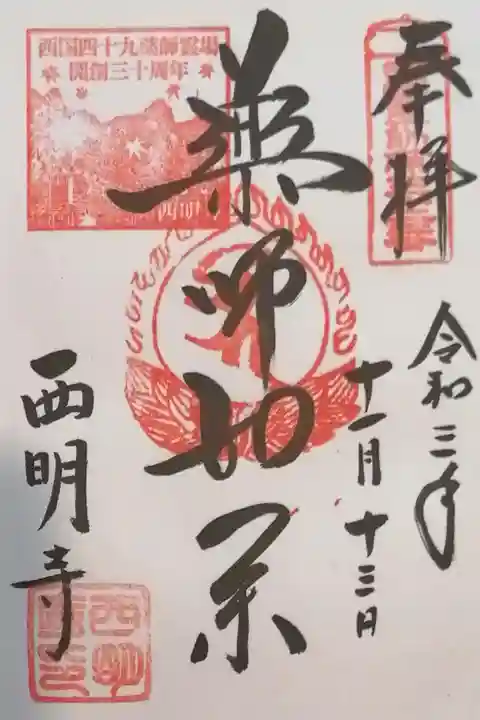 奉拝
令和三年
十一月十三日
薬师如来
西国四十九薬師霊場
開創三十周年
西明寺
西明寺